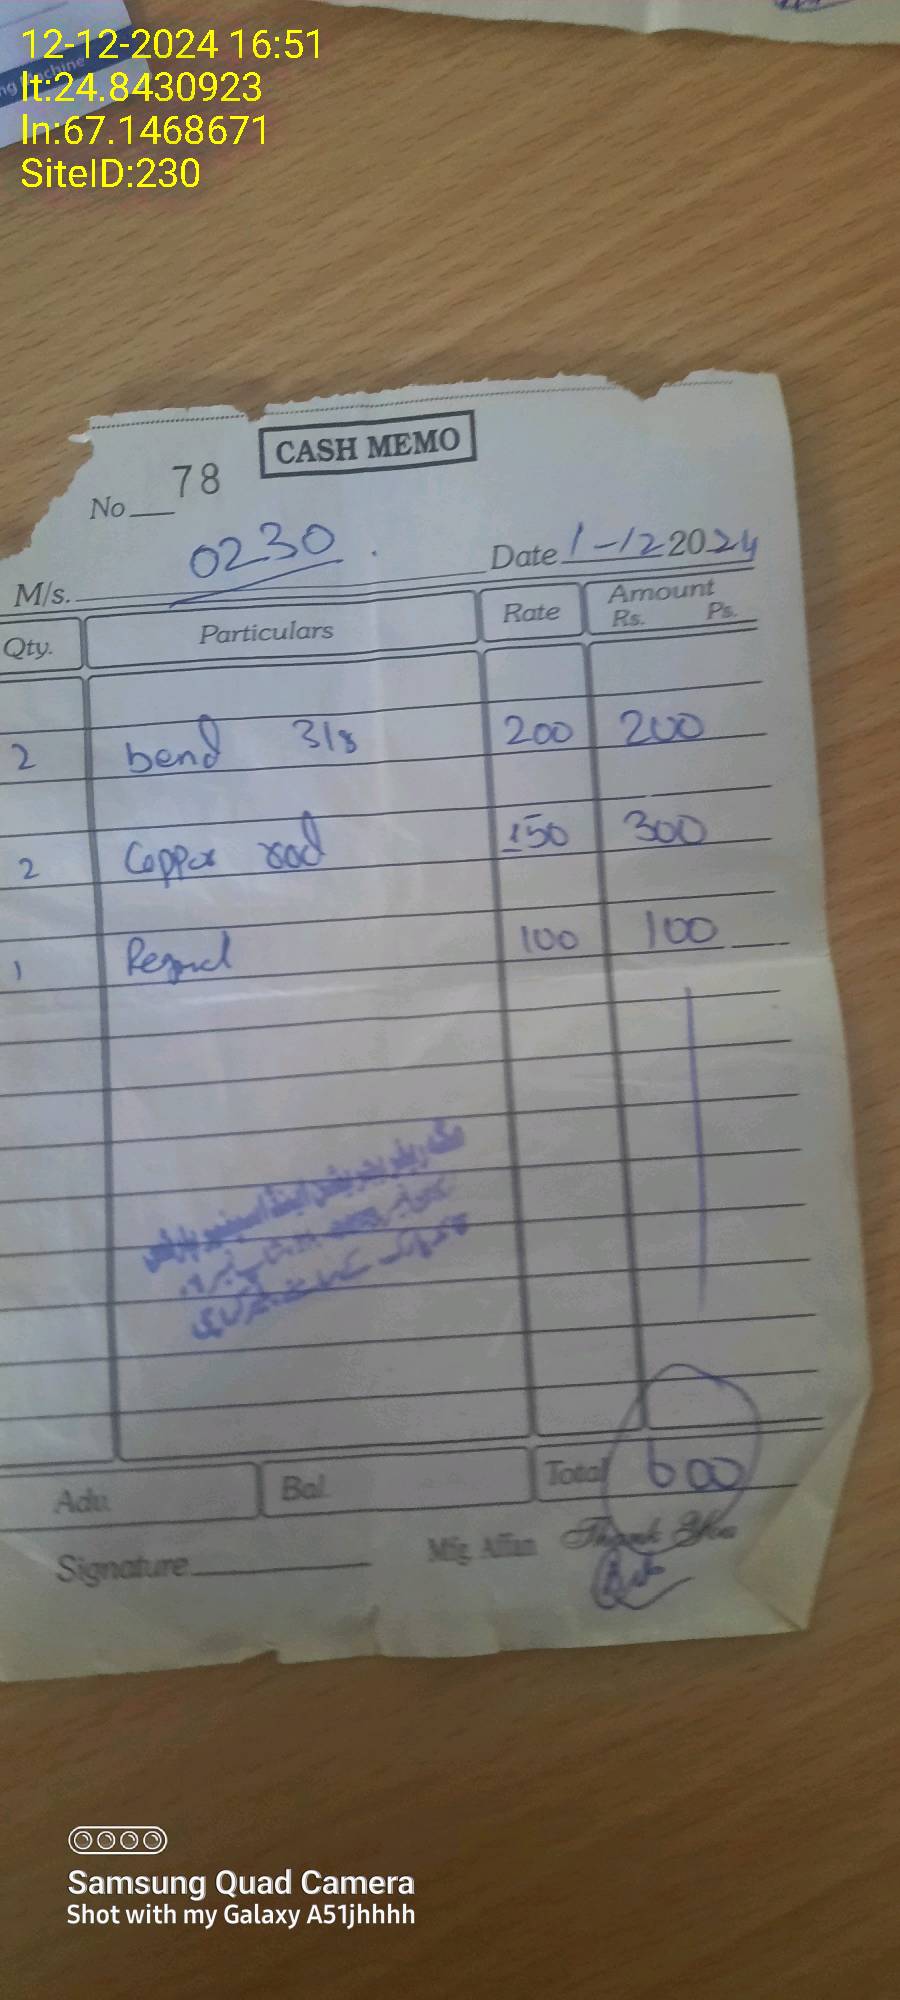 12-12-2024 16:51
lt:24.8430923
ln:67.1468671
SiteID:230
CASH MEMO
No 78
M/s. 0230 Date 1-12 2024
Qty. Particulars Rate Amount Rs. Ps.
2 bend 3/8 200 200
2 Copper rod 150 300
1 100 100
Adv. Bal. Total 600
Signature Mfg. Affan Thank You
Samsung Quad Camera
Shot with my Galaxy A51jhhhh